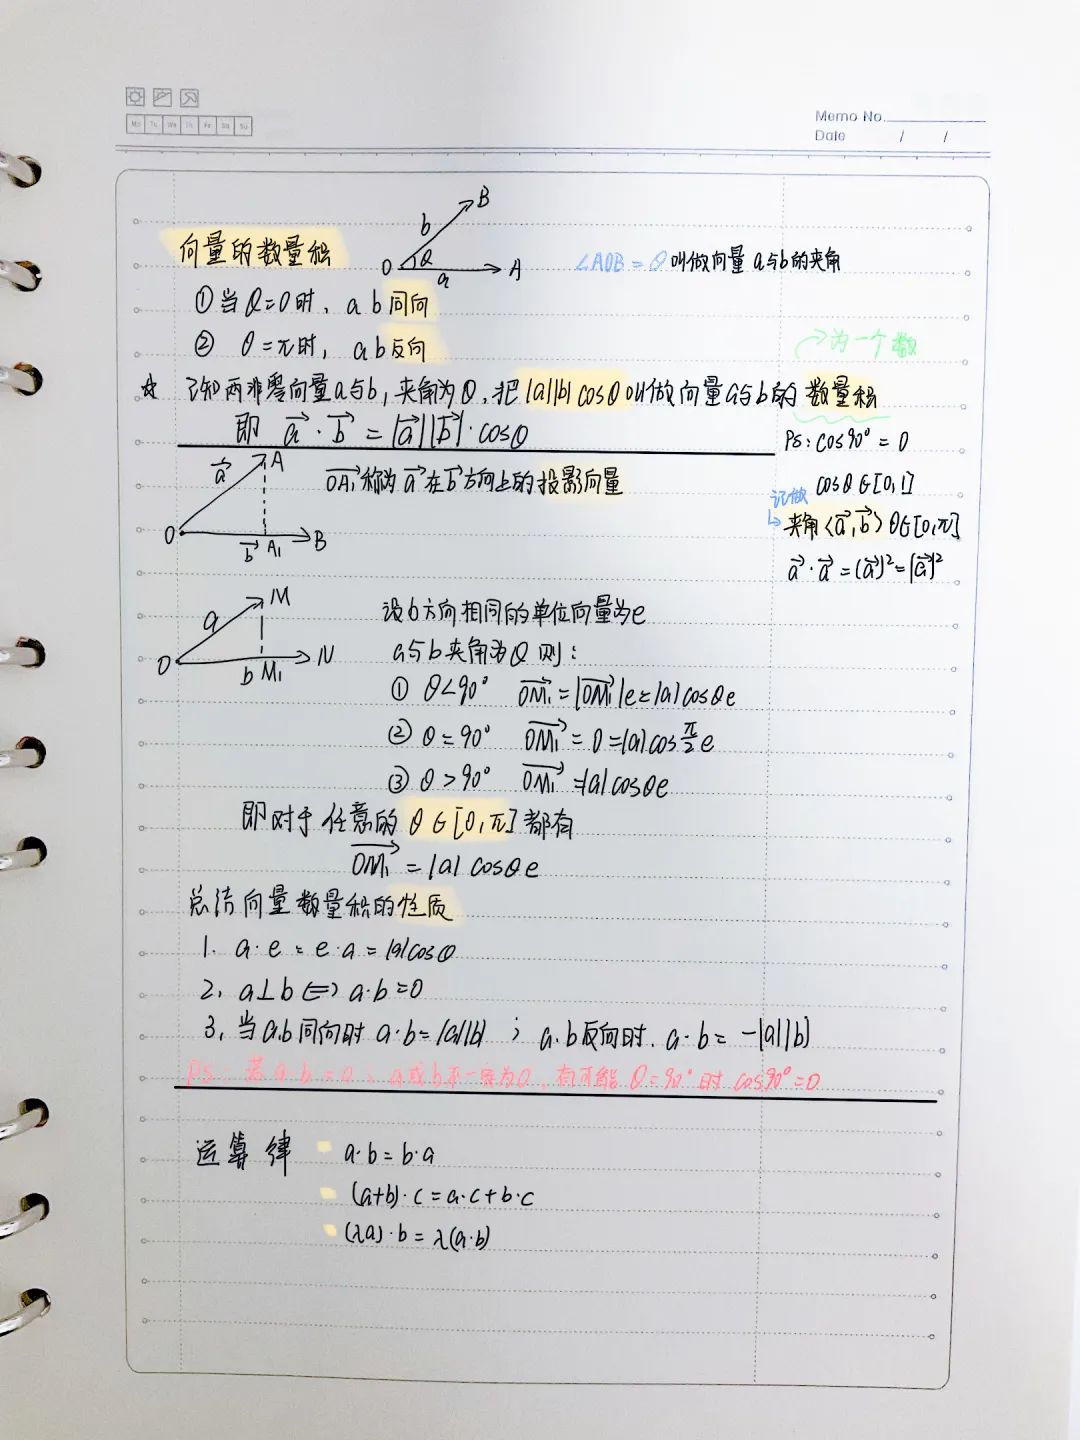 Mo Tu We Th Fr Sa Su
Memo No.
Date / /
向量的数量积
B
b
θ
O
a
A
∠AOB = θ 叫做向量 a与b的夹角
①当θ=0时, a b 同向
② θ=π时, a b 反向
→为一个数
☆ 已知两非零向量a与b,夹角为θ,把|a||b|cosθ叫做向量a与b的数量积
即 \vec{a}·\vec{b} = |\vec{a}||\vec{b}|·cosθ
PS: cos90° = 0
cosθ∈[0,1]
记做
↳夹角<\vec{a},\vec{b}> θ∈[0,π]
\vec{a}·\vec{a}=(\vec{a})²=|\vec{a}|²
\vec{a}
A
\overrightarrow{OA₁}称为\vec{a}在\vec{b}方向上的投影向量
O
\vec{b}
A₁
B
a
M
O
b
M₁
N
设b方向相同的单位向量为e
a与b夹角为θ 则:
① θ<90° \overrightarrow{OM₁}=|\overrightarrow{OM₁}|e=|a|cosθe
② θ=90° \overrightarrow{OM₁}=0=|a|cos\frac{π}{2}e
③ θ>90° \overrightarrow{OM₁}=|a|cosθe
即对于任意的θ∈[0,π]都有
\overrightarrow{OM₁}=|a|cosθe
总结向量数量积的性质
1. a·e=e·a=|a|cosθ
2, a⊥b⇔a·b=0
3, 当a.b同向时 a·b=|a||b| ; a.b反向时. a·b=-|a||b|
PS: 若a·b=0; a或b不一定为0, 有可能θ=90°时 cos90°=0
运算律
a·b=b·a
(a+b)·c=a·c+b·c
(λa)·b=λ(a·b)